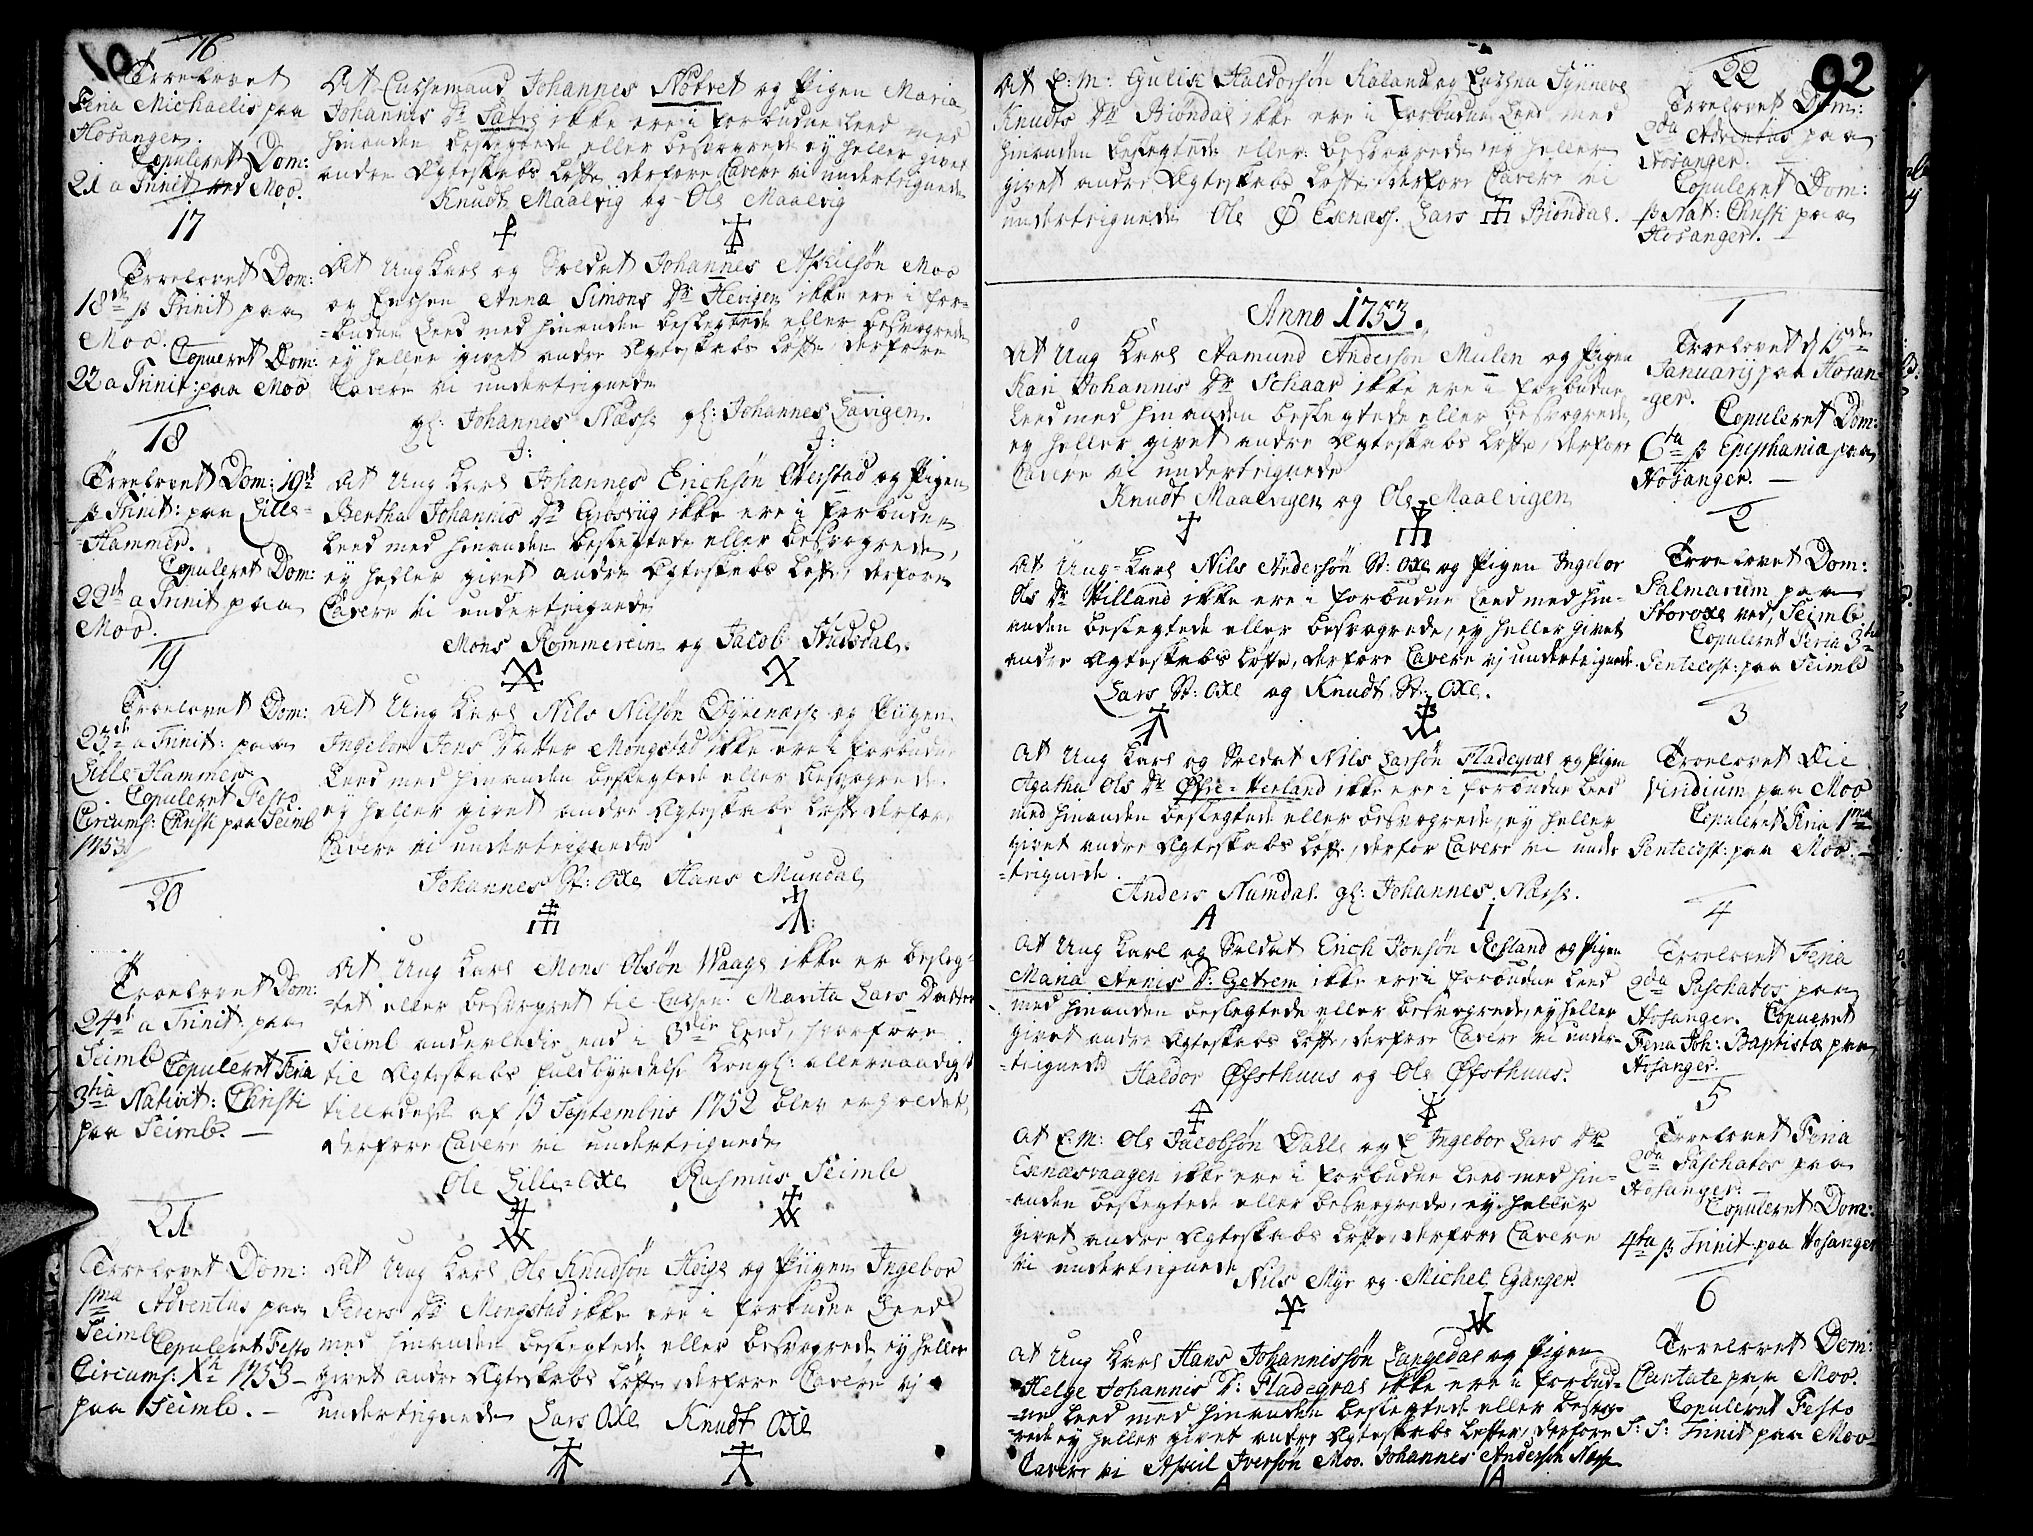 16
Troelovet
Feria Michaelis paa
Hosanger.
Copuleret Dom:
21 a Trinit ved Moo.
At Enkemand Johannes Nøtvet og Pigen Maria
Johannis Dr Sætre ikke ere i forbudne Leed med
hinanden beslegtede eller besvogrede ey heller givet
andre Ægteskabs Løfte derfore Cavere vi undertegnede
Knudt Maalvig og Ole Maalvig
17
Troelovet Dom:
18de p Trinit paa
Moo.
Copuleret Dom:
22 a Trinit: paa Moo
At Ung Karl og Soldat Johannes Aschilsøn Moo
og Enchen Anna Simons Dr Hevigen ikke ere i for-
-budne Leed med hinanden beslegtede eller besvogrede
ey heller givet andre Ægteskabs Løfte, derfore
Cavere vi undertegnede
gl: Johannes Næsse gl: Johannes Lavigen.
I: J:
18
Troelovet Dom: 19de
p Trinit: paa Lille-
-Hammer.
Copuleret Dom:
22de a Trinit paa
Moo.
At Ung Karl Johannes Erichsøn Qverstad og Pigen
Bertha Johannis Dr Grosviig ikke ere i forbudne
Leed med hinanden beslegtede eller besvogrede,
ey heller givet andre Ægteskabs Løfte, derfore
Cavere vi undertegnede
Mons Rommereim og Jacob Studsdal.
19
Troelovet Dom:
23de a Trinit: paa
Lille-Hammer
Copuleret Festo
Circums: Christi paa Seimb
1753
At Ung Karl Nils Nilsøn Dyrenæsse og Piigen
Ingebor Jens Datter Mongstad ikke ere i forbudne
Leed med hinanden beslegtede eller besvogrede
ey heller givet andre Ægteskabs Løfte derfore
Cavere vi undertegnede
Johannes St: Oxe Hans Mundal
20
Troelovet Dom:
24de a Trinit: paa
Seimb Copuleret Feria
3tia Nativit: Christi
paa Seimb. —
At Ung Karl Mons Olsøn Waage ikke er besleg-
-tet eller besvogret til Enchen Marita Lars Datter
Seiml anderledis end i 3die Leed, hvorfore
til Ægteskabs fuldbyrdelse Kongl: allernaadigst
tilladelse af 13 Septembris 1752 blev erholdet,
derfore Cavere vi undertegnede
Ole Lille-Oxe Rasmus Seimb
21
Troelovet Dom:
1ma Adventus paa
Seimb Copuleret Festo
Circums: Xti 1753 —
paa Seimb. —
At Ung Karl Ole Knudsøn Høige og Piigen Ingebor
Peders Dr Mongstad ikke ere i forbudne Leed
med hinanden beslegtede eller besvogrede ey heller
givet andre Ægteskabs Løfte derfore Cavere vj
undertegnede Lars Oxe Knudt Oxe
92
At E: M: Gulik Haldorsøn Kaland og Enchen Synneve
Knudts Dr Biøndal ikke ere i forbudne Leed med
hinanden beslegtede eller besvogrede ey heller
givet andre Ægteskabs Løfte derfore Cavere vi
undertegnede Ole Esenæss. Lars Biøndal.
22
Troelovet Dom:
2da Adventus paa
Hosanger. —
Copuleret Dom:
p Nat: Christi paa
Hosanger. —
Anno 1753.
At Ung Karl Aamund Andersøn Mulen og Pigen
Kari Johannis Dr Schaar ikke ere i forbudne
Leed med hinanden beslegtede eller besvogrede,
ey heller givet andre Ægteskabs Løfte, derfore
Cavere vi undertegnede
Knudt Maalvigen og Ole Maalvigen
1
Troelovet d 15de
January paa Hosan-
-ger.
Copuleret Dom:
6ta p Epiphania paa
Hosanger. —
At Ung-Karl Nils Andersøn St: Oxe og Pigen Ingebor
Ols Dr Hilland ikke ere i forbudne Leed med hin-
anden beslegtede eller besvogrede, ey heller givet
andre Ægteskabs Løfte, derfore Cavere vj undertegnede
Lars St: Oxe og Knudt St: Oxe.
2
Troelovet Dom:
Palmarum paa
Storoxe ved Seimb
Copuleret Feria 3tia
Pentecost: paa Seimb
At Ung Karl og Soldat Nils Larsøn Fladegral og Pigen
Agatha Ols Dr Øfre-Herland ikke ere i forbudne Leed
med hinanden beslegtede eller besvogrede, ey heller
givet andre Ægteskabs Løfte, derfor Cavere vi unde-
-tegnede.
Anders Namdal. gl: Johannes Næsse.
A I
3
Troelovet Die
Viridium paa Moo
Copuleret Feria 1ma
Pentecost: paa Moo. —
At Ung Karl og Soldat Erich Jonsøn Røsland og Pigen
Maria Annis D: Getrem ikke ere i forbudne Leed
med hinanden beslegtede eller besvogrede, ey heller
givet andre Ægteskabs Løfte, derfore Cavere vi under-
-tegnede Haldor Øfsthuus og Ole Øfsthuus.
4
Troelovet Feria
2da Paschatos paa
Hosanger. Copuleret
Feria Joh: Baptistæ paa
Hosanger.
At E: M: Ole Jacobsøn Dalle og E Ingebor Lars Dr
Esenæsvaagen ikke ere i forbudne Leed med hin-
-anden beslegtede eller besvogrede, ey heller
givet andre Ægteskabs Løfte, derfore Cavere
vi undertegnede
Nils Myr og Michel Eganger.
5
Troelovet Feria
2da Paschatos paa
Hosanger. —
Copuleret Dom:
4ta p Trinit paa Hosanger
At Ung Karl Hans Johannissøn Langedal og Pigen
Helge Johannis D: Fladegral ikke ere i forbud-
-ne Leed med hinanden beslegtede eller besvog-
-rede ey heller givet andre Ægteskabs Løfter, derfore
Cavere vi Aschil Iversøn Moo. Johannes Andersøn Næsse
A IA
6
Troelovet Dom:
Cantate paa Moo.
Copuleret Festo
S: S: Trinit paa Moo